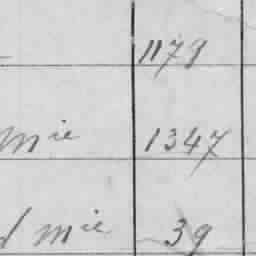 1179
mie 1347
d mie 39